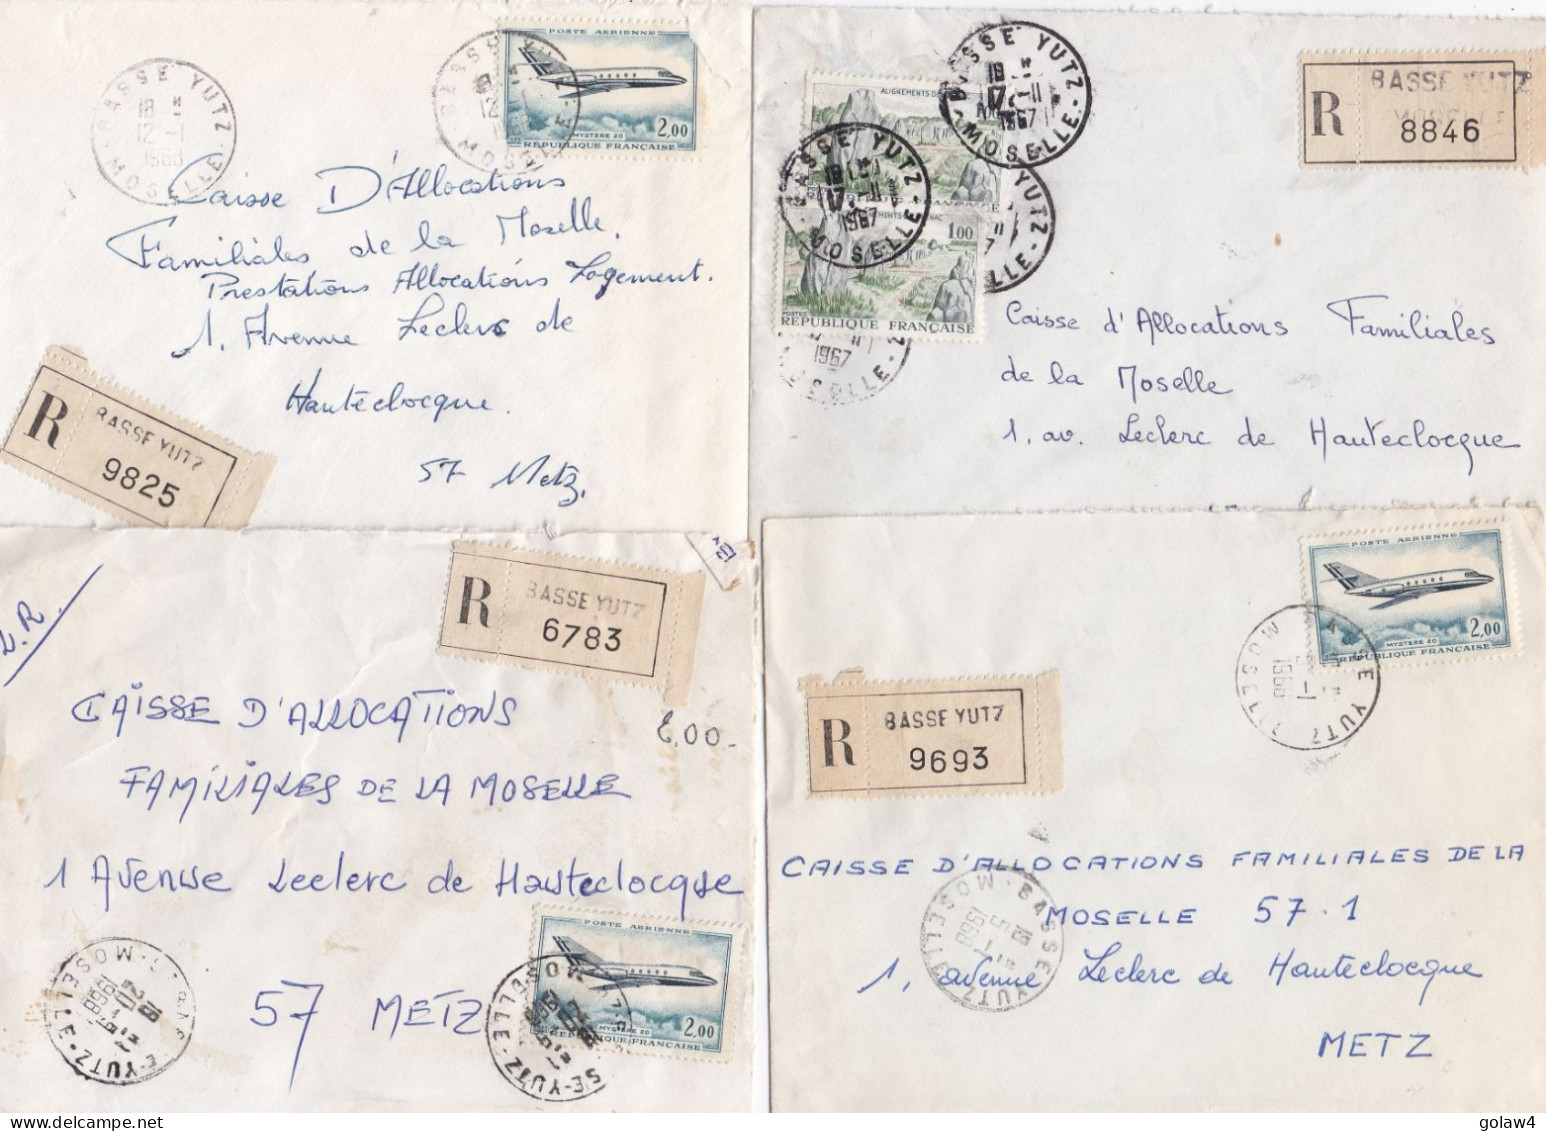 BASSE YUTZ
18 H
12 -1
1968
MOSELLE
POSTE AERIENNE
MYSTERE 20
2,00
REPUBLIQUE FRANÇAISE
BASSE YUTZ
12
MOSELLE
Caisse D'Allocations
Familiales de la Moselle.
Prestations Allocations Logement.
1, Avenue Leclerc de
Hauteclocque.
57 Metz.
R
BASSE YUTZ
9825
BASSE YUTZ
18 H
17 -11
1967
MOSELLE
BASSE YUTZ
18 H
17 -11
1967
MOSELLE
ALIGNEMENTS DE
1,00
REPUBLIQUE FRANÇAISE
YUTZ
1967
MOSELLE
R
BASSE YUTZ
MOSELLE
8846
Caisse d'Allocations Familiales
de la Moselle
1, av. Leclerc de Hauteclocque
L.R.
R
BASSE YUTZ
6783
CAISSE D'ALLOCATIONS
2,00-
FAMILIALES DE LA MOSELLE
1 Avenue Leclerc de Hauteclocque
57 METZ
POSTE AERIENNE
MYSTERE 20
2,00
REPUBLIQUE FRANÇAISE
E-YUTZ
MOSELLE
1968
SE-YUTZ
MOSELLE
POSTE AERIENNE
MYSTERE 20
2,00
REPUBLIQUE FRANÇAISE
BASSE YUTZ
-1
1968
MOSELLE
R
BASSE YUTZ
9693
CAISSE D'ALLOCATIONS FAMILIALES DE LA
MOSELLE 57.1
1, avenue Leclerc de Hauteclocque
METZ
BASSE YUTZ
18 H
5 -1
1968
MOSELLE
golaw4